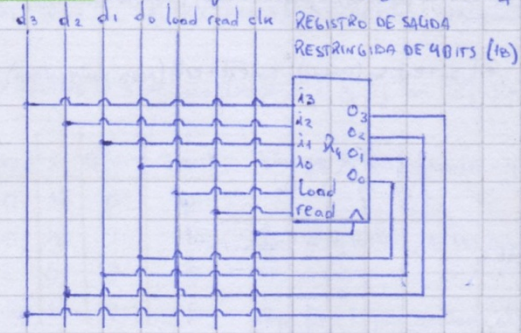 d3 d2 d1 d0 load read clk
REGISTRO DE SALIDA
RESTRINGIDA DE 4BITS (1B)
i3
i2
i1
i0
load
read
R4
O3
O2
O1
O0